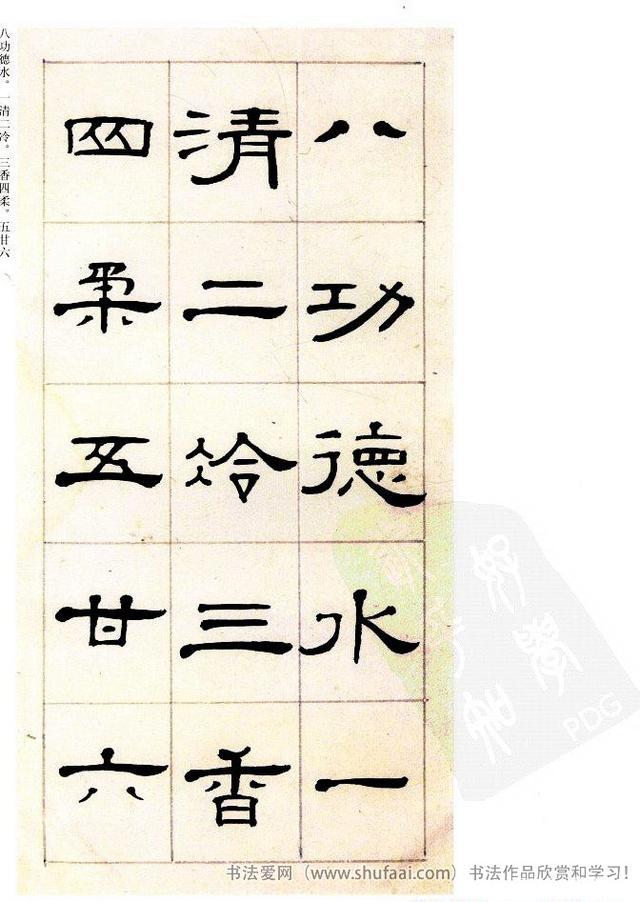 八功德水。一清二冷。三香四柔。五甘六
八功德水一
清二冷三香
四柔五甘六
PDG
书法爱网（www.shufaai.com）书法作品欣赏和学习！